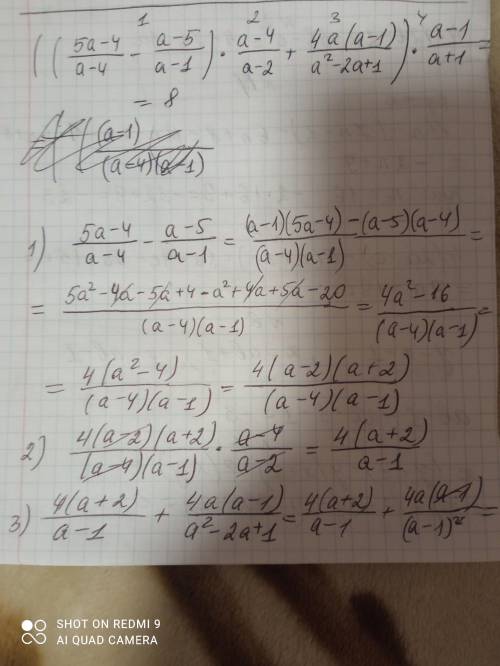 1 2 3 4
((5a-4/a-4 - a-5/a-1) · a-4/a-2 + 4a(a-1)/a²-2a+1) · a-1/a+1 =
= 8
(a-1)
(a-4)(a-1)
1) 5a-4/a-4 - a-5/a-1 = (a-1)(5a-4)-(a-5)(a-4)/(a-4)(a-1) =
= 5a²-4a-5a+4-a²+4a+5a-20/(a-4)(a-1) = 4a²-16/(a-4)(a-1) =
= 4(a²-4)/(a-4)(a-1) = 4(a-2)(a+2)/(a-4)(a-1)
2) 4(a-2)(a+2)/(a-4)(a-1) · a-4/a-2 = 4(a+2)/a-1
3) 4(a+2)/a-1 + 4a(a-1)/a²-2a+1 = 4(a+2)/a-1 + 4a(a-1)/(a-1)² =
SHOT ON REDMI 9
AI QUAD CAMERA